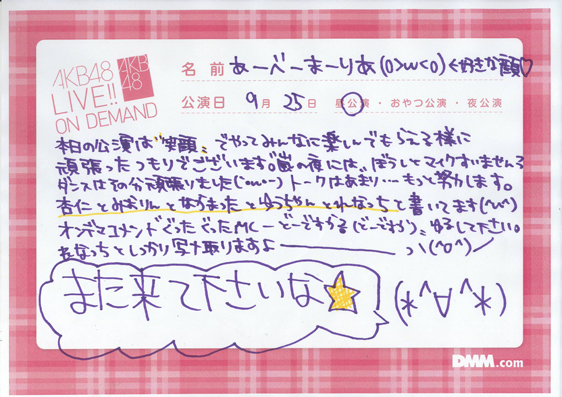 AKB48
LIVE!!
ON DEMAND
AKB
48
名 前 あーべーまーりあ(0>w<0)←好きな顔♡
公演日 9月 25日 昼公演・おやつ公演・夜公演
本日の公演は"笑顔"でやってみんなに楽しんでもらえる様に
頑張ったつもりでございます。嵐の夜には、ぼうしとマイクすいませんでし
ダンスはその分頑張りました(´ω`)トークはあまり…もっと努力します。
杏仁とみおりんとなつまったとゆうちゃんとれなっちと書いてます(^w^)
オンデマンドぐったぐったMC
ゆるして下さい。
れなっちとしっかり写メ取りますよ
\(^o^)/
また来て下さいな☆
(*^A^*)
DMM.com